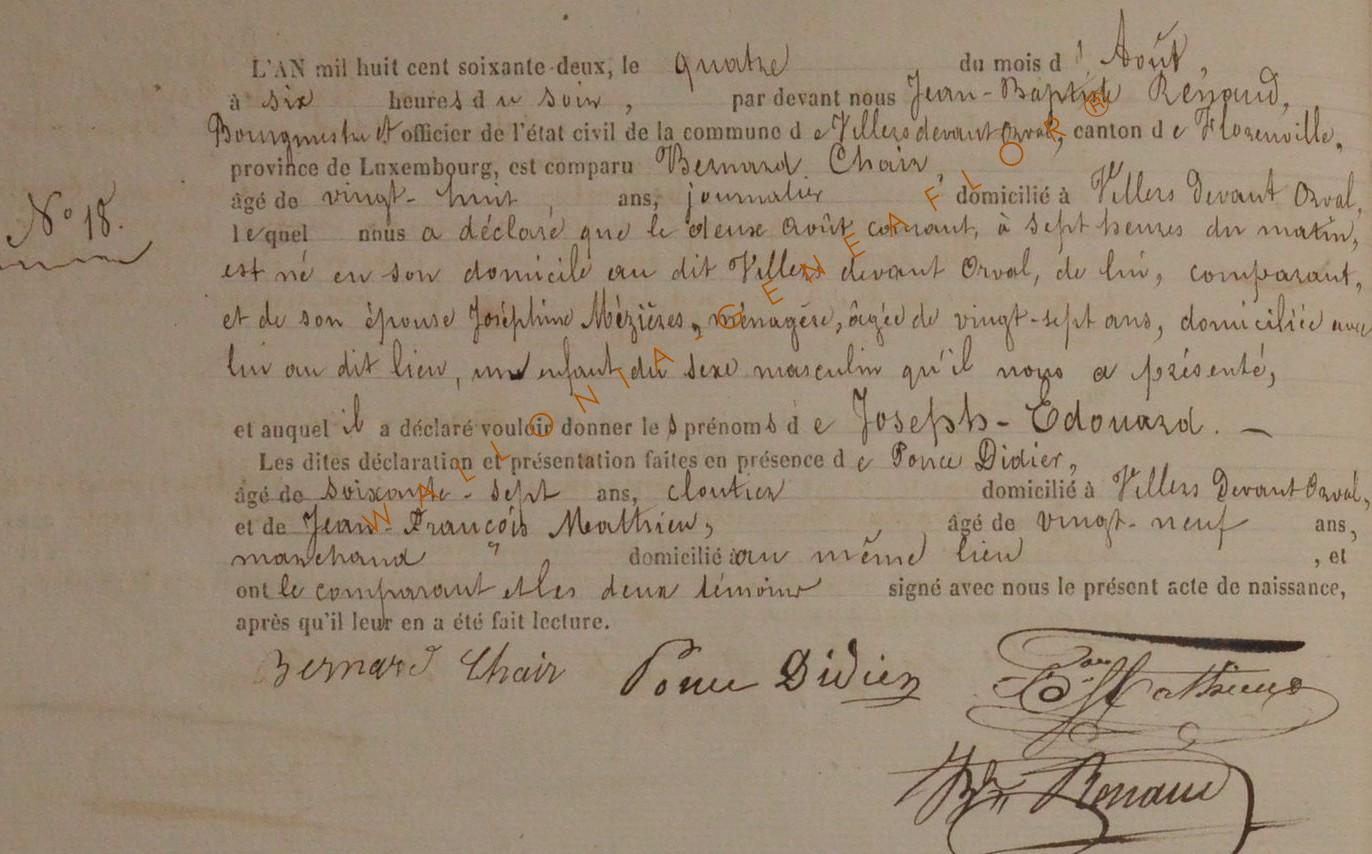 L'AN mil huit cent soixante-deux, le quatre du mois d' Août,
à six heures du soir, par devant nous Jean-Baptiste Renaud,
Bourgmestre et officier de l'état civil de la commune de Villers devant Orval, canton de Florenville,
province de Luxembourg, est comparu Bernard Chair,
âgé de vingt-huit ans, journalier domicilié à Villers Devant Orval,
N° 18.
lequel nous a déclaré que le deux Août courant, à sept heures du matin,
est né en son domicile au dit Villers devant Orval, de lui, comparant,
et de son épouse Joséphine Mézières, ménagère, âgée de vingt-sept ans, domiciliée avec
lui au dit lieu, un enfant du sexe masculin qu'il nous a présenté,
et auquel il a déclaré vouloir donner les prénoms de Joseph-Edouard. —
Les dites déclaration et présentation faites en présence de Ponce Didier,
âgé de soixante-sept ans, cloutier domicilié à Villers Devant Orval,
et de Jean-François Mathieu, âgé de vingt-neuf ans,
marchand domicilié à au même lieu, et
ont le comparant et les deux témoins signé avec nous le présent acte de naissance,
après qu'il leur en a été fait lecture.
Bernard Chair Ponce Didier Mathieu
Renaud
WALLONIA, GENEAFLOR®